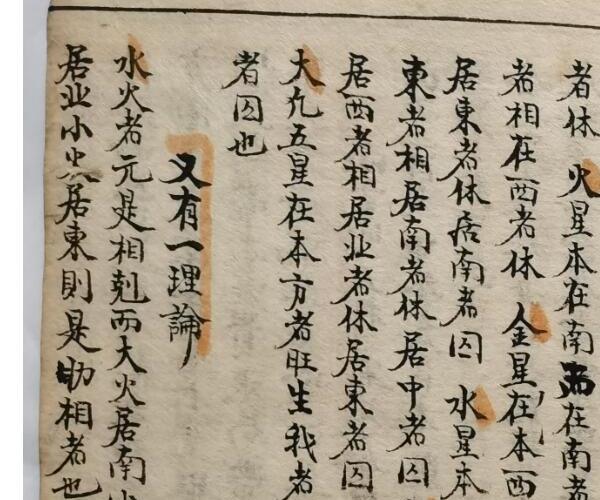 者休 火星本在南而在南者
者相在西者休 金星在本西
居東者休居南者囚 水星本
東者相居南者休居中者囚
居西者相居北者休居東者囚
大凡五星在本方者旺生我者
者囚也
又有一理論
水火者元是相剋而大火居南小
居北小火居東則是助相者也